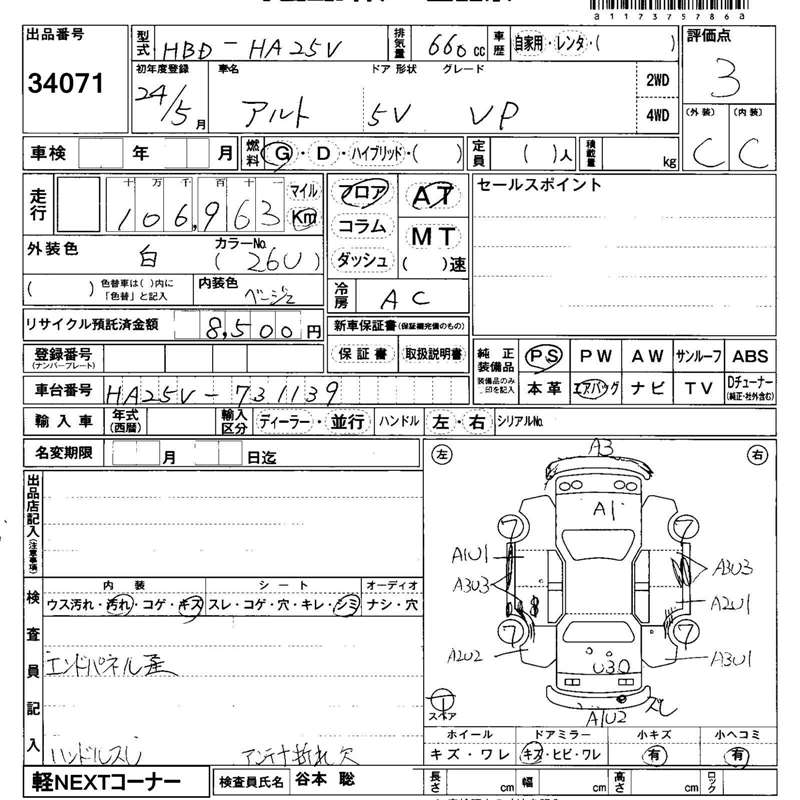 a1173757866a
出品番号
34071
型式 HBD-HA25V 排気量 660cc 車歴 自家用・レンタ・( )
初年度登録 車名 ドア 形状 グレード
24/5月 アルト 5V VP
2WD
4WD
評価点
3
(外装) (内装)
C C
車検 年 月 燃料 G・D・ハイブリッド・( ) 定員 ( )人 積載量 kg
走行 十 万 千 百 十 一 マイル
106,963 Km
フロア
コラム
ダッシュ
AT
MT
( )速
セールスポイント
外装色 白 カラーNo. (26U)
( ) 色替車は( )内に「色替」と記入 内装色 ベージュ
冷房 AC
リサイクル預託済金額 8,500円
新車保証書(保証継完備のもの)
保証書 取扱説明書
登録番号
(ナンバープレート)
純正装備品 PS PW AW サンルーフ ABS
装備品のみ印を記入 本革 エアバッグ ナビ TV Dチューナー
(純正・社外含む)
車台番号 HA25V-731139
輸入車 年式(西暦) 輸入区分 ディーラー・並行 ハンドル 左・右 シリアルNo.
名変期限 月 日迄
出品店記入(注意事項)
検査員記入
内装 シート オーディオ
ウス汚れ・汚れ・コゲ・キズ スレ・コゲ・穴・キレ・シミ ナシ・穴
エンドパネル歪
ハンドルスレ アンテナ折れ欠
左 右
A3
A1
7 7
A1U1
A3U3
A3U3
A2U1
7 7
A2U2
A3U1
U30
スペア
A1U2
ズレ
ホイール ドアミラー 小キズ 小ヘコミ
キズ・ワレ キズ・ヒビ・ワレ 有 有
軽NEXTコーナー 検査員氏名 谷本 聡
長さ cm 幅 cm 高さ cm ロック